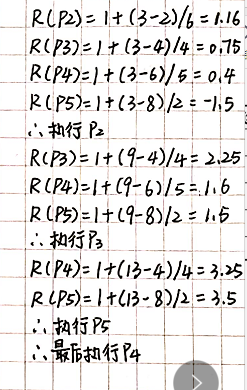 R(P2)=1+(3-2)/6=1.16
R(P3)=1+(3-4)/4=0.75
R(P4)=1+(3-6)/5=0.4
R(P5)=1+(3-8)/2=-1.5
∴执行P2
R(P3)=1+(9-4)/4=2.25
R(P4)=1+(9-6)/5=1.6
R(P5)=1+(9-8)/2=1.5
∴执行P3
R(P4)=1+(13-4)/4=3.25
R(P5)=1+(13-8)/2=3.5
∴执行P5
∴最后执行P4